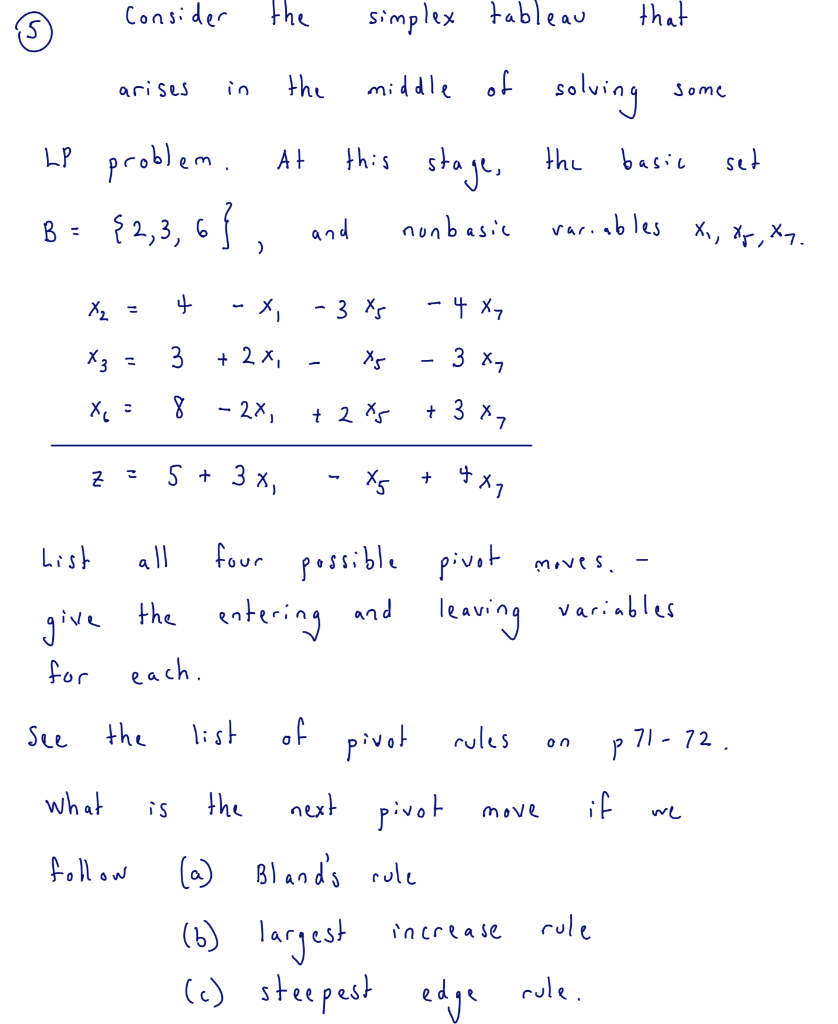 ⑤ Consider the simplex tableau that
arises in the middle of solving some
LP problem. At this stage, the basic set
B = {2,3, 6}, and nonbasic variables x₁, x₅, x₇.
x₂ = 4 - x₁ - 3 x₅ - 4 x₇
x₃ = 3 + 2 x₁ - x₅ - 3 x₇
x₆ = 8 - 2x₁ + 2 x₅ + 3 x₇
z = 5 + 3 x₁ - x₅ + 4 x₇
List all four possible pivot moves. -
give the entering and leaving variables
for each.
See the list of pivot rules on p 71 - 72.
What is the next pivot move if we
follow (a) Bland's rule
(b) largest increase rule
(c) steepest edge rule.